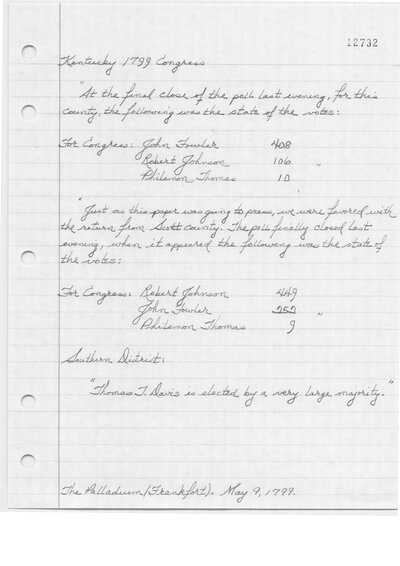 12732
Kentucky 1799 Congress
"At the final close of the poll last evening, for this
county, the following was the state of the votes:
For Congress: John Fowler 408
Robert Johnson 106 "
Philemon Thomas 10
"Just as this paper was going to press, we were favored with
the return from Scott County. The poll finally closed last
evening, when it appeared the following was the state of
the votes:
For Congress: Robert Johnson 449
John Fowler 257 "
Philemon Thomas 9
Southern District:
"Thomas T. Davis is elected by a very large majority."
The Palladium (Frankfort). May 9, 1799.